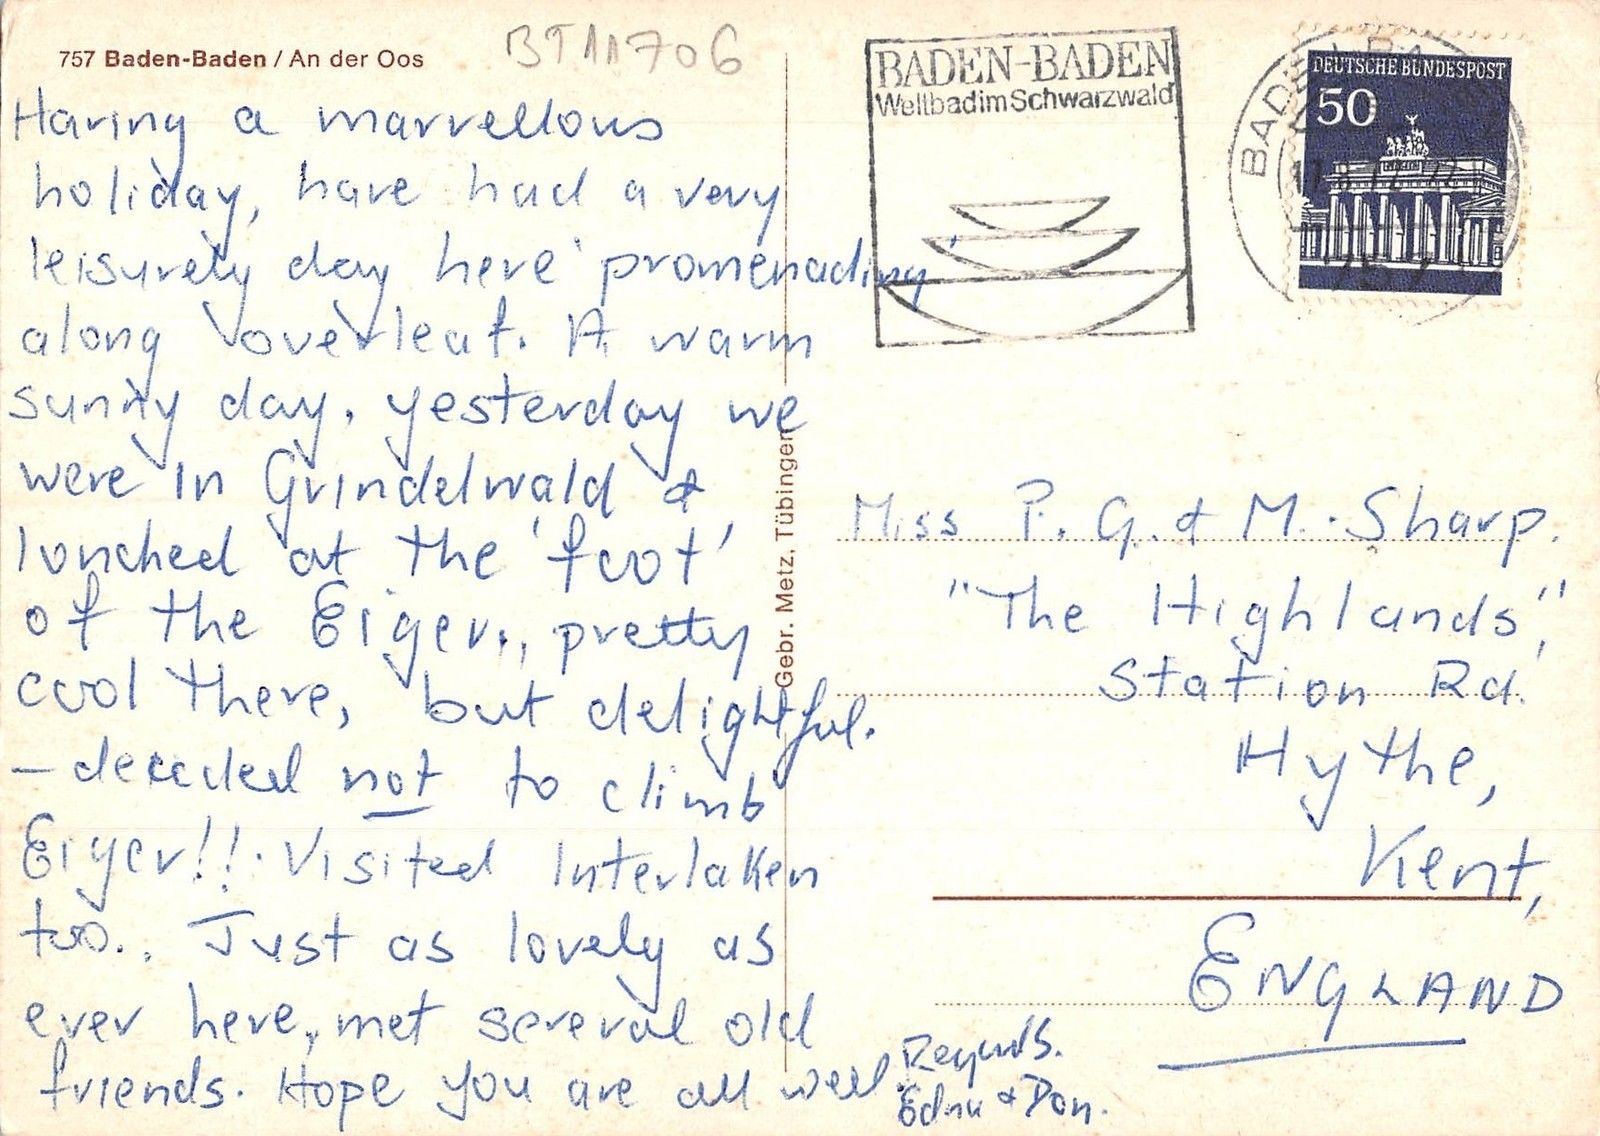 757 Baden-Baden / An der Oos
BT11706
Having a marvellous
holiday, have had a very
leisurely day here 'promenading'
along overleaf. A warm
sunny day, yesterday we
were in Grindelwald &
lunched at the 'foot'
of the Eiger., pretty
cool there, but delightful.
— decided not to climb
Eiger!!. Visited Interlaken
too.. Just as lovely as
ever here, met several old
friends. Hope you are all well.
Regards.
Edna & Don.
Gebr. Metz, Tübingen
BADEN-BADEN
Weltbad im Schwarzwald
BADEN-BA
DEUTSCHE BUNDESPOST
50
Miss P. G. & M. Sharp.
"The Highlands",
Station Rd.
Hythe,
Kent,
ENGLAND